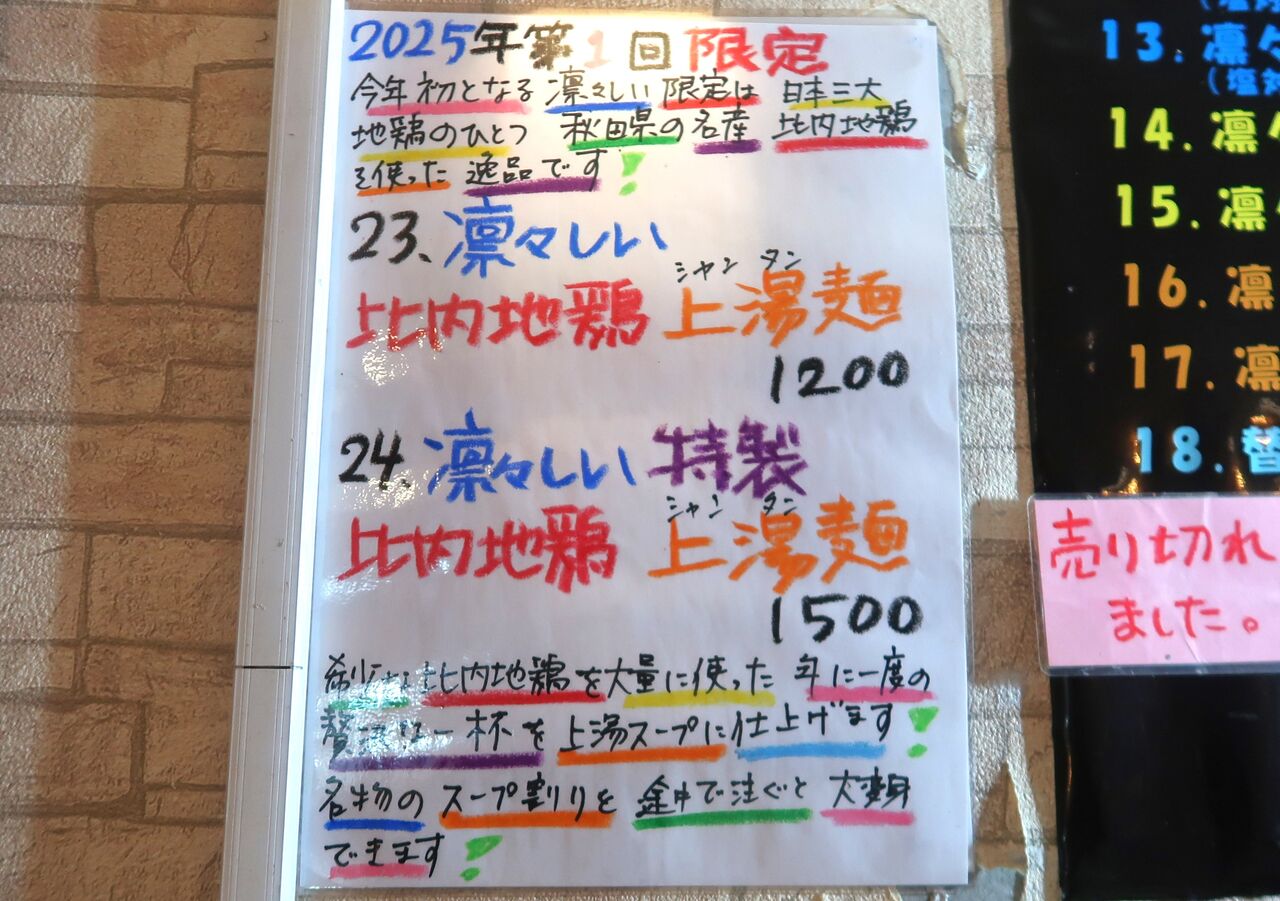 2025年第1回 限定
今年初となる 凛々しい 限定は 日本三大
地鶏のひとつ 秋田県の名産 比内地鶏
を使った 逸品です!
23. 凛々しい
シャン タン
比内地鶏 上湯麺
1200
24. 凛々しい 特製
シャン タン
比内地鶏 上湯麺
1500
希少な 比内地鶏を大量に使った 年に一度の
贅沢な一杯を 上湯スープに仕上げます!
名物の スープ割りを 途中で注ぐと 大変身
できます!
13. 凛々
14. 凛々
15. 凛
16. 凛
17. 凛
18. 替
売り切れ
ました。